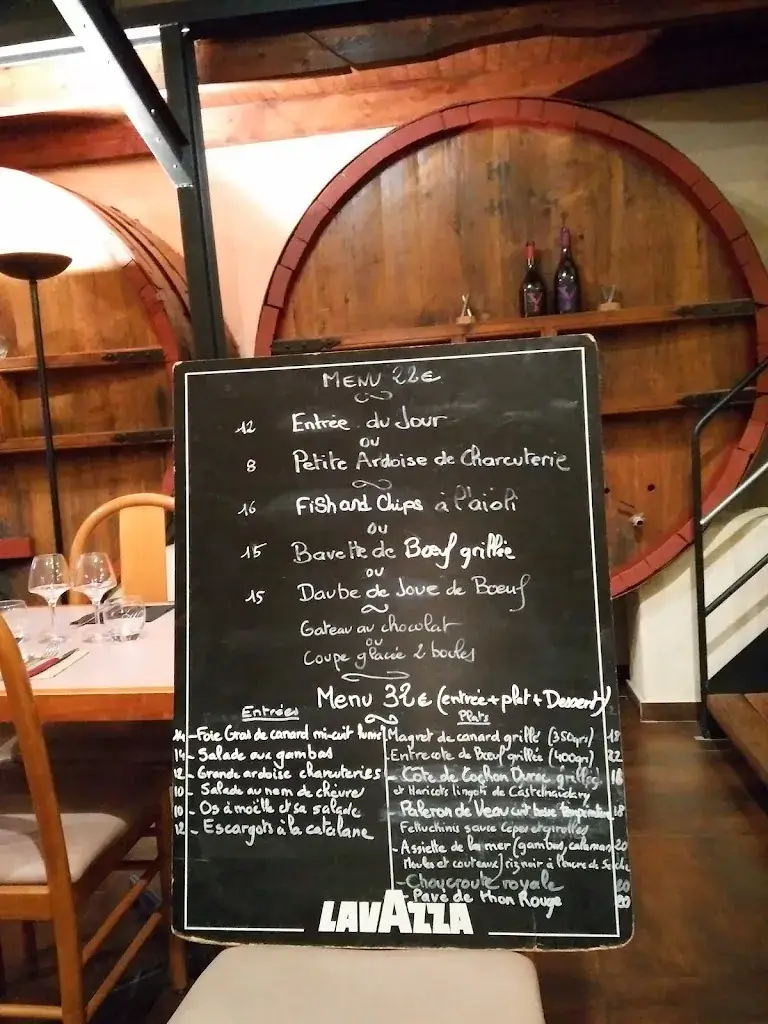 MENU 22€
12 Entrée du Jour
ou
8 Petite Ardoise de Charcuterie
16 Fish and Chips à l'aioli
ou
15 Bavette de Bœuf grillée
ou
15 Daube de Joue de Boeuf
Gateau au chocolat
ou
Coupe glacée 2 boules
Menu 32€ (entrée + plat + Dessert)
Entrées
14 - Foie Gras de canard mi-cuit
14 - Salade aux gambas
12 - Grande ardoise charcuteries
10 - Salade au nem de chèvre
10 - Os à moëlle et sa salade
12 - Escargots à la catalane
Plats
Magret de canard grillé (350grs) 18
- Entrecote de Bœuf grillée (400grs) 22
- Côte de Cochon Duroc grillée
et Haricots lingots de Castelnaudary
Paleron de Veau cuit basse température 18
Fettuchinis sauce Cèpes et girolles
- Assiette de la mer (gambas, calamar 20
Moules et couteaux) riz noir à l'encre de Seiche
- Choucroute royale 20
- Pavé de thon Rouge 20
LAVAZZA